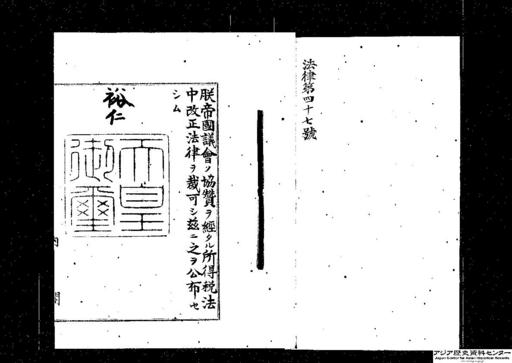 法律第四十七號
朕帝國議會ノ協贊ヲ經タル所得税法
中改正法律ヲ裁可シ茲ニ之ヲ公布セ
シム
裕仁
天皇
御璽
内閣
アジア歴史資料センター
Japan Center for Asian Historical Records